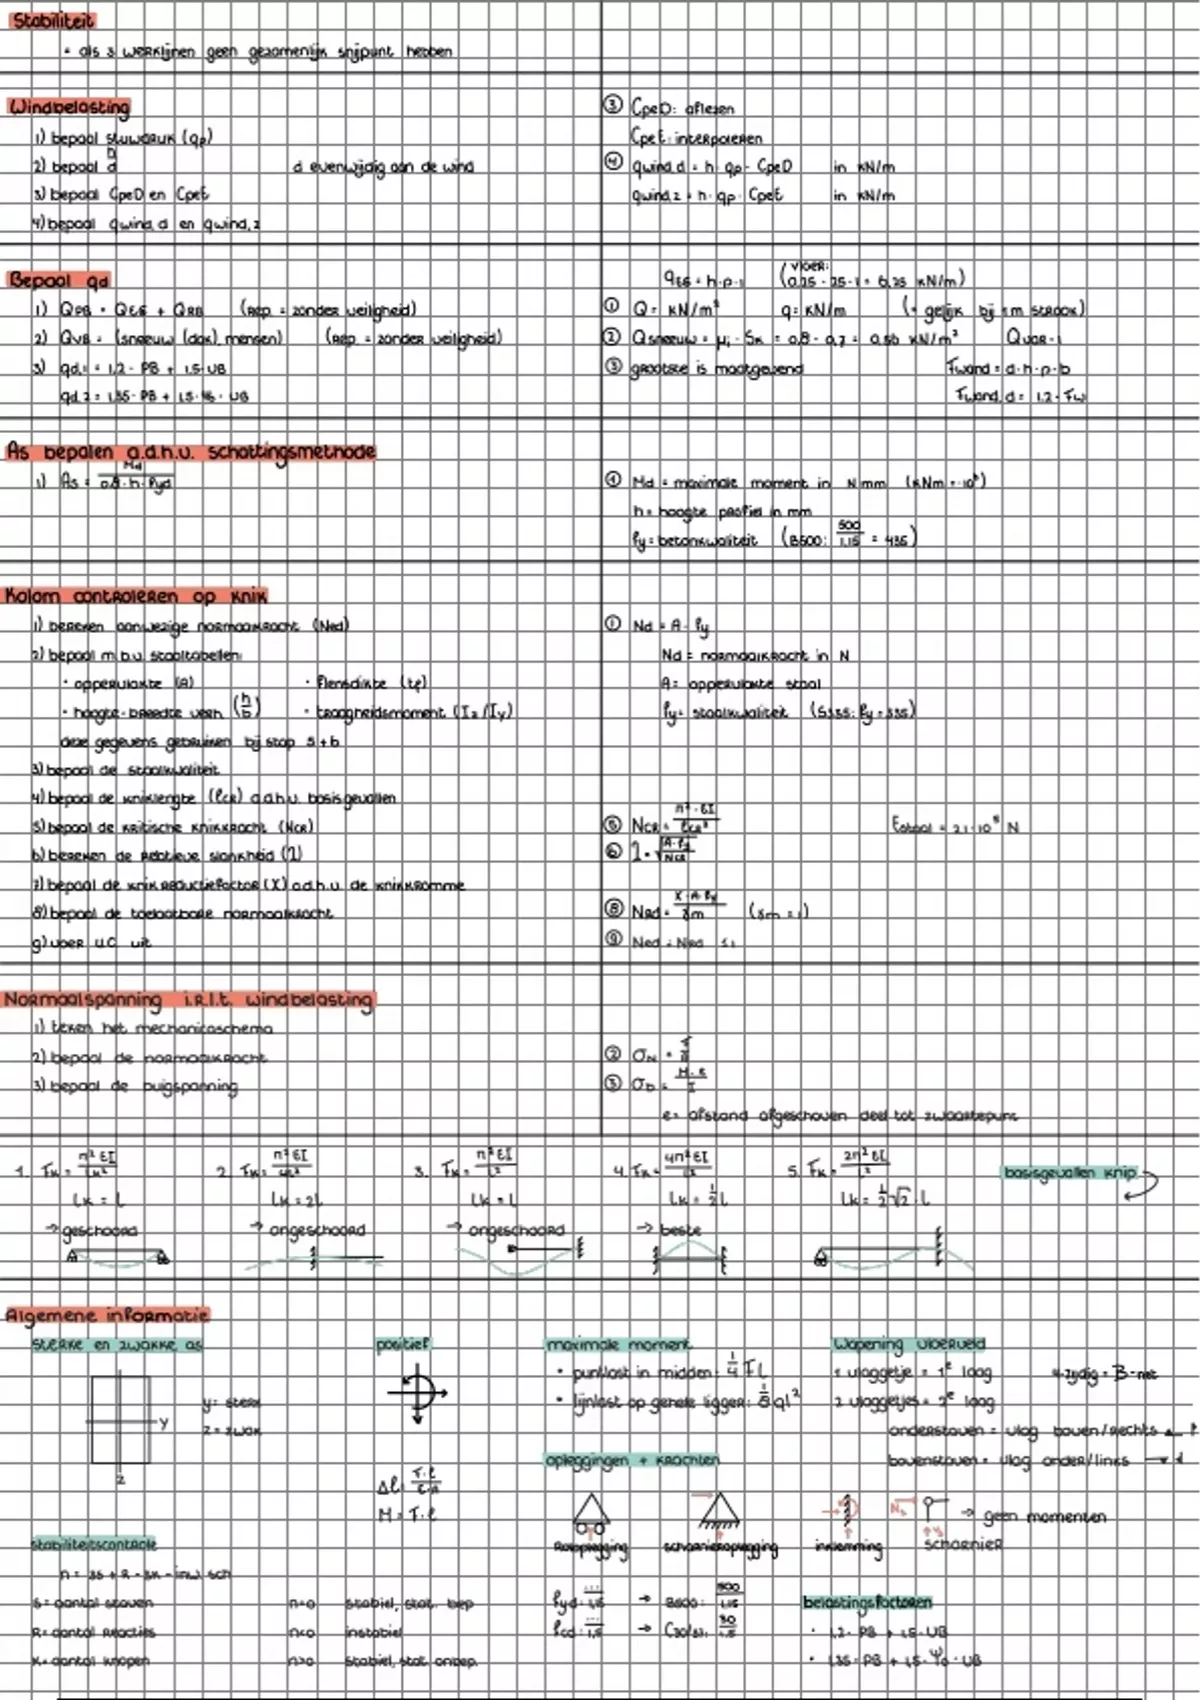 Stabiliteit
• als 3 werklijnen geen gezamenlijk snijpunt hebben
Windbelasting
1) bepaal stuwdruk (qp)
2) bepaal h/d d evenwijdig aan de wind
3) bepaal CpeD en CpeE
4) bepaal qwind,d en qwind,z
③ CpeD: aflezen
CpeE: interpoleren
④ qwind,d = h · qp · CpeD in kN/m
qwind,z = h · qp · CpeE in kN/m
Bepaal qd
1) QPB = QEG + QRB (Rep. = zonder veiligheid)
2) QVB = (sneeuw (dak), mensen) (Rep. = zonder veiligheid)
3) qd,1 = 1,2 · PB + 1,5 · VB
qd,2 = 1,35 · PB + 1,5 · Ψ0 · VB
qEG = h · ρ · 1 (vloer: 0,25 · 25 · 1 = 6,25 kN/m)
① Q = kN/m² q = kN/m (= gelijk bij 1m strook)
② Qsneeuw = μi · Sk = 0,8 · 0,7 = 0,56 kN/m²
③ grootste is maatgevend Fwand = d · h · ρ · b
Fwand,d = 1,2 · Fw
As bepalen a.d.h.v. schattingsmethode
1) As = Md / 0,8 · h · fyd
① Md = maximale moment in Nmm (kNm = · 10⁶)
h = hoogte profiel in mm
fy = betonkwaliteit (B500: 500/1,15 = 435)
Kolom controleren op knik
1) bereken aanwezige normaalkracht (Ned)
2) bepaal m.b.v. staaltabellen:
• oppervlakte (A) • flensdikte (tf)
• hoogte-breedte verh. (h/b) • traagheidsmoment (Iz/Iy)
deze gegevens gebruiken bij stap 5+6
3) bepaal de staalkwaliteit
4) bepaal de kniklengte (lcr) a.d.h.v. basisgevallen
5) bepaal de kritische knikkracht (Ncr)
6) bereken de relatieve slankheid (λ)
7) bepaal de knikreductiefactor (X) a.d.h.v. de knikkromme
8) bepaal de toelaatbare normaalkracht
9) voer U.C. uit
① Nd = A · fy
Nd = normaalkracht in N
A = oppervlakte staal
fy = staalkwaliteit (S355: fy = 355)
⑤ Ncr = π² · EI / lcr² Estaal = 2,1 · 10⁵ N
⑥ λ = √(A · fy / Ncr)
⑧ Nrd = X · A · fy / γm (γm = 1)
⑨ Ned : Nrd ≤ 1
Normaalspanning i.r.l.t. windbelasting
1) teken het mechanicaschema
2) bepaal de normaalkracht
3) bepaal de buigspanning
② σN =
③ σb = M · e / I
e = afstand afgeschoven deel tot zwaartepunt
1. Fk = π² EI / lk² 2. Fk = π² EI / 4l² 3. Fk = π² EI / l² 4. Fk = 4π² EI / l² 5. Fk = 2π² EI / l² basisgevallen knip
lk = l lk = 2l lk = l lk = ½ l lk = ½√2 · l
→ geschoord → ongeschoord → ongeschoord → beste
Algemene informatie
sterke en zwakke as
y
z
y = sterk
z = zwak
positief
Δl = F · l / E · A
M = F · l
maximale moment
• puntlast in midden: ¼ Fl
• lijnlast op gehele ligger: ⅛ ql²
opleggingen + krachten
Roloplegging scharnieroplegging inklemming scharnier
→ geen momenten
Wapening vloerveld
1 vlaggetje = 1e laag 4-zijdig = B-net
2 vlaggetjes = 2e laag
onderstaven = vlag boven/rechts
bovenstaven = vlag onder/links
stabiliteitscontrole
n = 3S + R - 3K - inw. sch
S = aantal staven n=0 stabiel, stat. bep
R = aantal reacties n<0 instabiel
K = aantal knopen n>0 stabiel, stat. onbep.
fyd = .../1,15 → B500: 500/1,15
fcd = .../1,5 → C30/37: 30/1,5
belastingsfactoren
• 1,2 · PB + 1,5 · VB
• 1,35 · PB + 1,5 · Ψ0 · VB